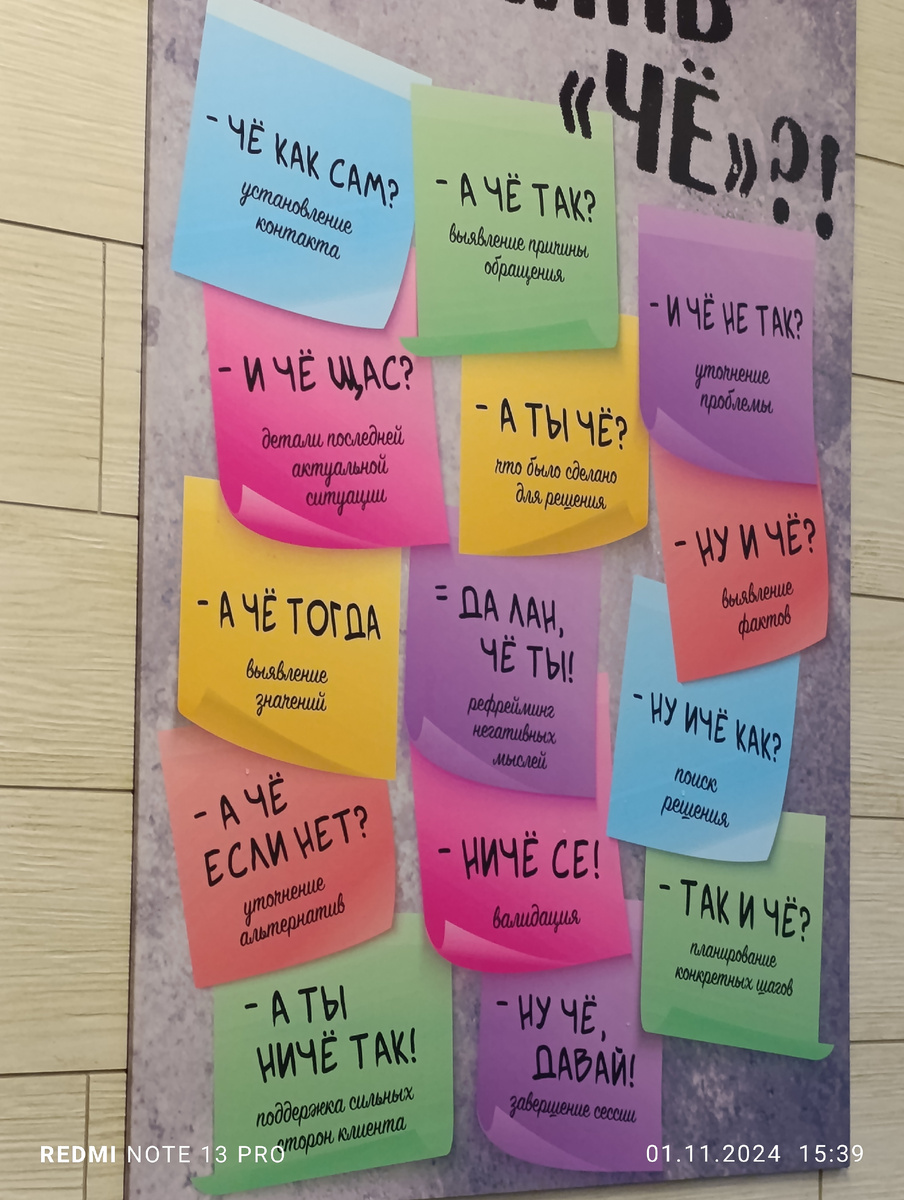 «ЧЁ»?!
- ЧЁ КАК САМ?
установление
контакта
- А ЧЁ ТАК?
выявление причины
обращения
- И ЧЁ НЕ ТАК?
уточнение
проблемы
- И ЧЁ ЩАС?
детали последней
актуальной
ситуации
- А ТЫ ЧЁ?
что было сделано
для решения
- НУ И ЧЁ?
выявление
фактов
- А ЧЁ ТОГДА
выявление
значений
= ДА ЛАН,
ЧЁ ТЫ!
рефрейминг
негативных
мыслей
- НУ ИЧЁ КАК?
поиск
решения
- А ЧЁ
ЕСЛИ НЕТ?
уточнение
альтернатив
- НИЧЁ СЕ!
валидация
- ТАК И ЧЁ?
планирование
конкретных шагов
- А ТЫ
НИЧЁ ТАК!
поддержка сильных
сторон клиента
- НУ ЧЁ,
ДАВАЙ!
завершение сессии
REDMI NOTE 13 PRO
01.11.2024 15:39